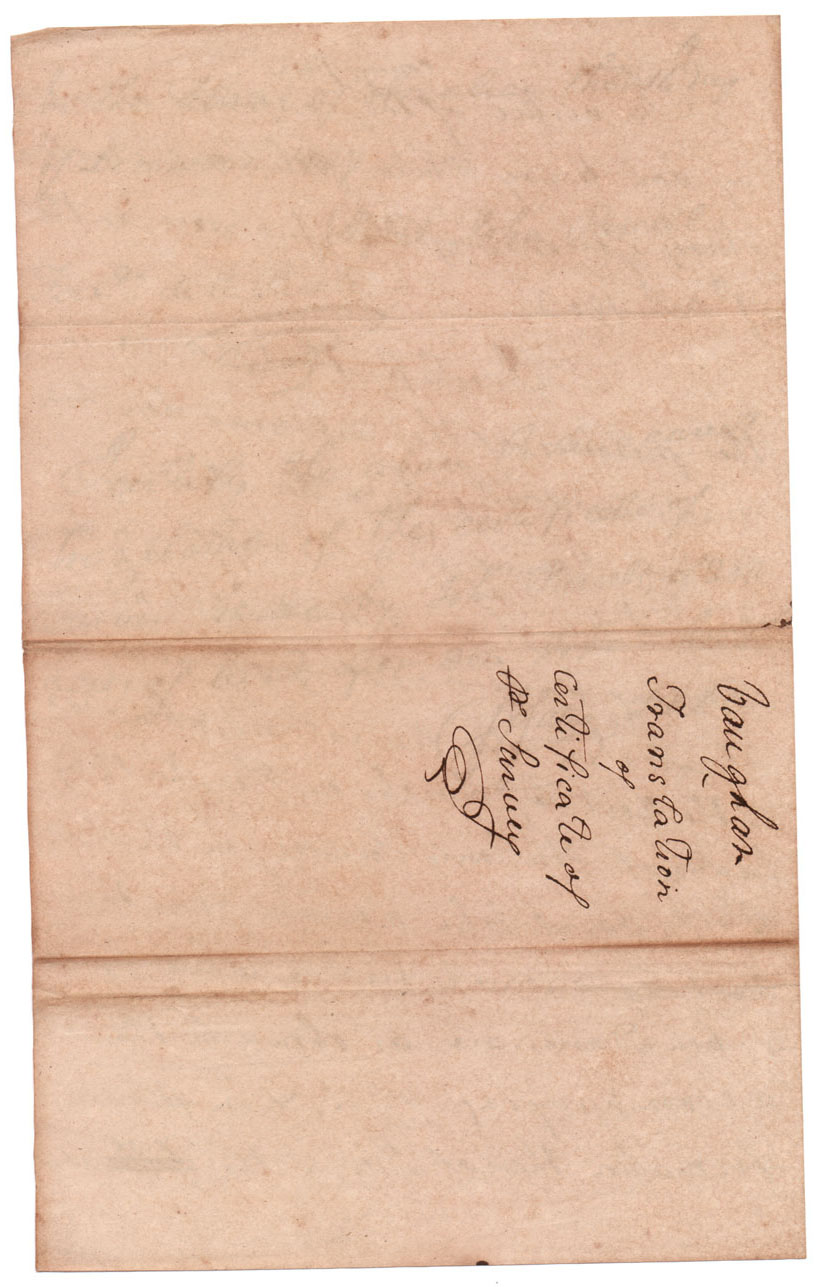 Vaughan
Translation
of
Certificate of
Survey